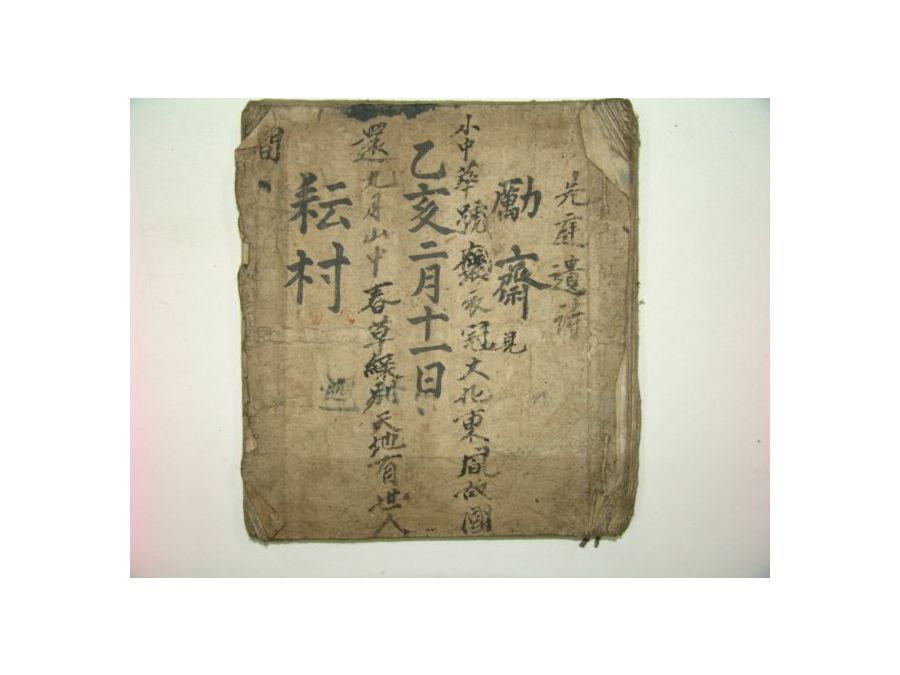 先庭遺詩
勵齋 見
小中華號舊衣冠大化東風故國
乙亥二月十一日
還九月山中春草綠別天地有世人
耘村
間